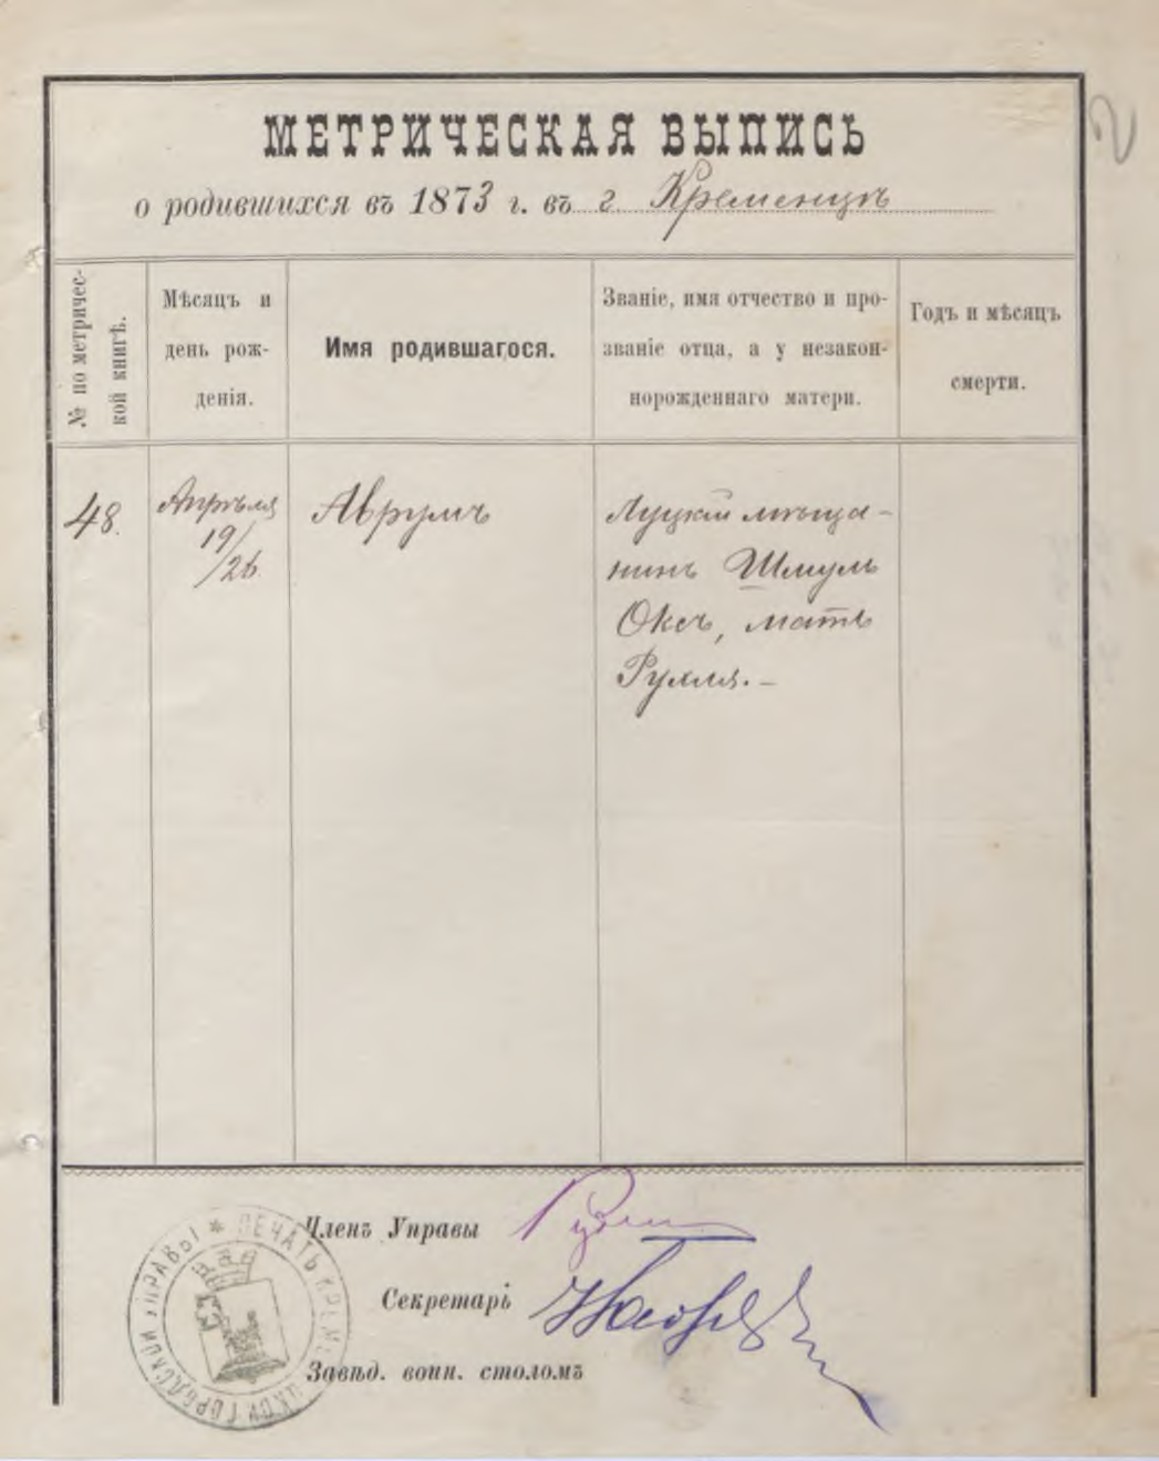 2
МЕТРИЧЕСКАЯ ВЫПИСЬ
о родившихся въ 1873 г. въ г. Кременцѣ
№ по метричес-
кой книгѣ.
Мѣсяцъ и
день рож-
денія.
Имя родившагося.
Званіе, имя отчество и про-
званіе отца, а у незакон-
норожденнаго матери.
Годъ и мѣсяцъ
смерти.
48.
Апрѣля
19/
/26.
Аврумъ
Луцкій мѣща-
нинъ Шмуль
Оксъ, мать
Рухля. –
Членъ Управы
Секретарь
Завѣд. воин. столомъ
* ПЕЧАТЬ КРЕМЕНЕЦКОЙ ГОРОДСКОЙ УПРАВЫ